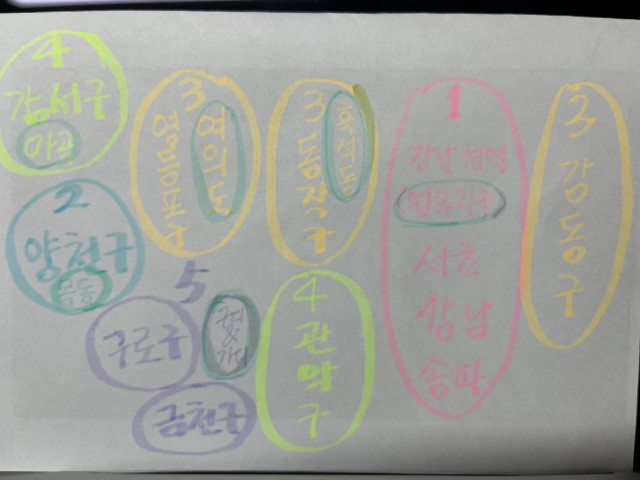 4
강서구
마곡
2
양천구
목동
3
영등포구
여의도
3
동작구
흑석동
1
강남
서초
강남
송파
3
강동구
5
구로구
금천구
4
관악구